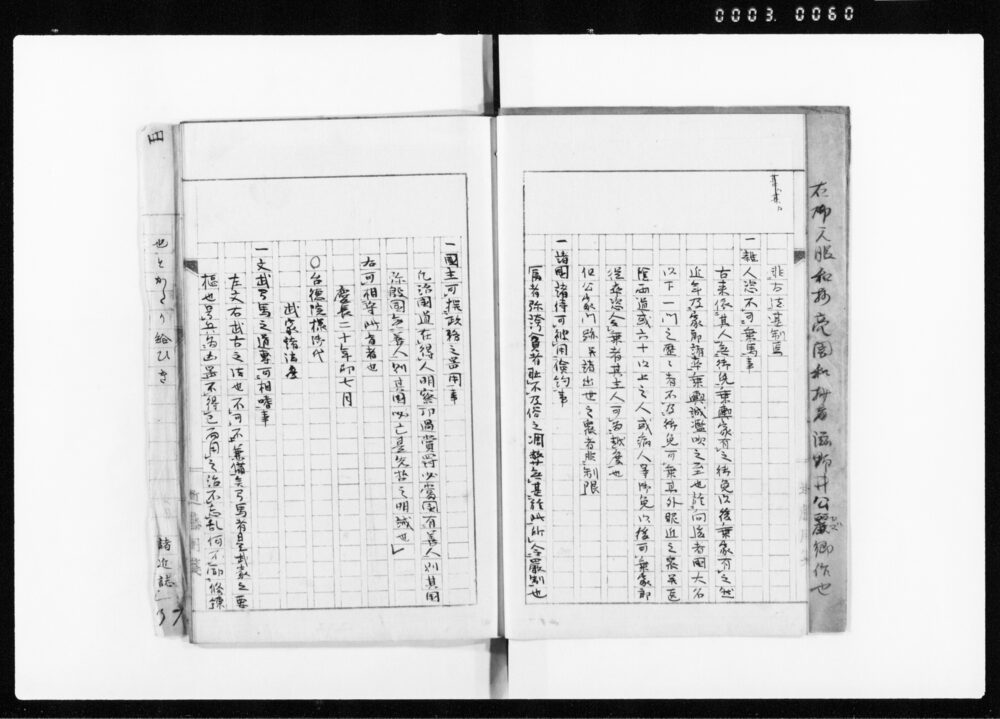 0003. 0060
非古法甚制焉
一雑人恣不可乗輿事
古来依其人無御免乗輿家有之御免以後乗家有之然
近年及家郎諸卒乗輿誠濫吹之至也於向後者国大名
以下一門之歴々者不及御免可乗其外昵近之衆并医
陰両道或六十以上之人或病人等御免以後可乗家郎
従卒恣令乗者其主人可為越度也
但公家門跡并諸出世之衆者非制限
一諸国諸侍可被用倹約事
富者弥誇貧者恥不及俗之凋弊無甚於此所令厳制也
一国主可撰政務之器用事
凡治国道在得人明察功過賞罰必当国有善人則其国
弥殷国無善人則其国必亡是先哲之明誡也
右可相守此旨者也
慶長二十年卯七月
○台徳院様御代
武家諸法度
一文武弓馬之道専可相嗜事
左文右武古之法也不可不兼備矣弓馬者是武家之要
枢也号兵為凶器不得已而用之治不忘乱何不励修錬
四
也
諸近誌
37